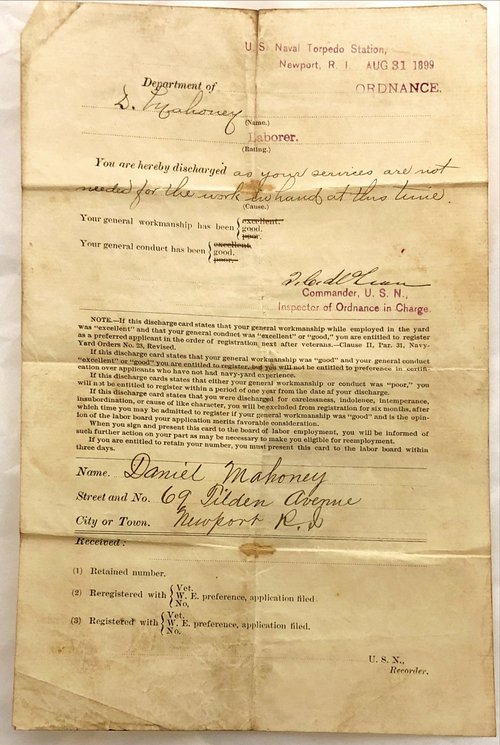 U. S. Naval Torpedo Station,
Newport, R. I. AUG 31 1899
Department of ORDNANCE.
D. Mahoney
(Name.)
Laborer.
(Rating.)
You are hereby discharged as your services are not
needed for the work in hand at this time.
(Cause.)
Your general workmanship has been { excellent. good. poor.
Your general conduct has been { excellent. good. poor.
Commander, U. S. N.,
Inspector of Ordnance in Charge.
NOTE.—If this discharge card states that your general workmanship while employed in the yard
was “excellent” and that your general conduct was “excellent” or “good,” you are entitled to register
as a preferred applicant in the order of registration next after veterans.—Clause II, Par. 31, Navy-
Yard Orders No. 23, Revised.
If this discharge card states that your general workmanship was “good” and your general conduct
“excellent” or “good,” you are entitled to register, but you will not be entitled to preference in certifi-
cation over applicants who have not had navy-yard experience.
If this discharge card states that either your general workmanship or conduct was “poor,” you
will not be entitled to register within a period of one year from the date of your discharge.
If this discharge card states that you were discharged for carelessness, indolence, intemperance,
insubordination, or cause of like character, you will be excluded from registration for six months, after
which time you may be admitted to register if your general workmanship was “good” and in the opin-
ion of the labor board your application merits favorable consideration.
When you sign and present this card to the board of labor employment, you will be informed of
such further action on your part as may be necessary to make you eligible for reemployment.
If you are entitled to retain your number, you must present this card to the labor board within
three days.
Name. Daniel Mahoney
Street and No. 69 Tilden Avenue
City or Town. Newport R.I
Received:
(1) Retained number.
(2) Reregistered with { Vet. W. E. No. preference, application filed
(3) Registered with { Vet. W. E. No. preference, application filed.
U. S. N.,
Recorder.